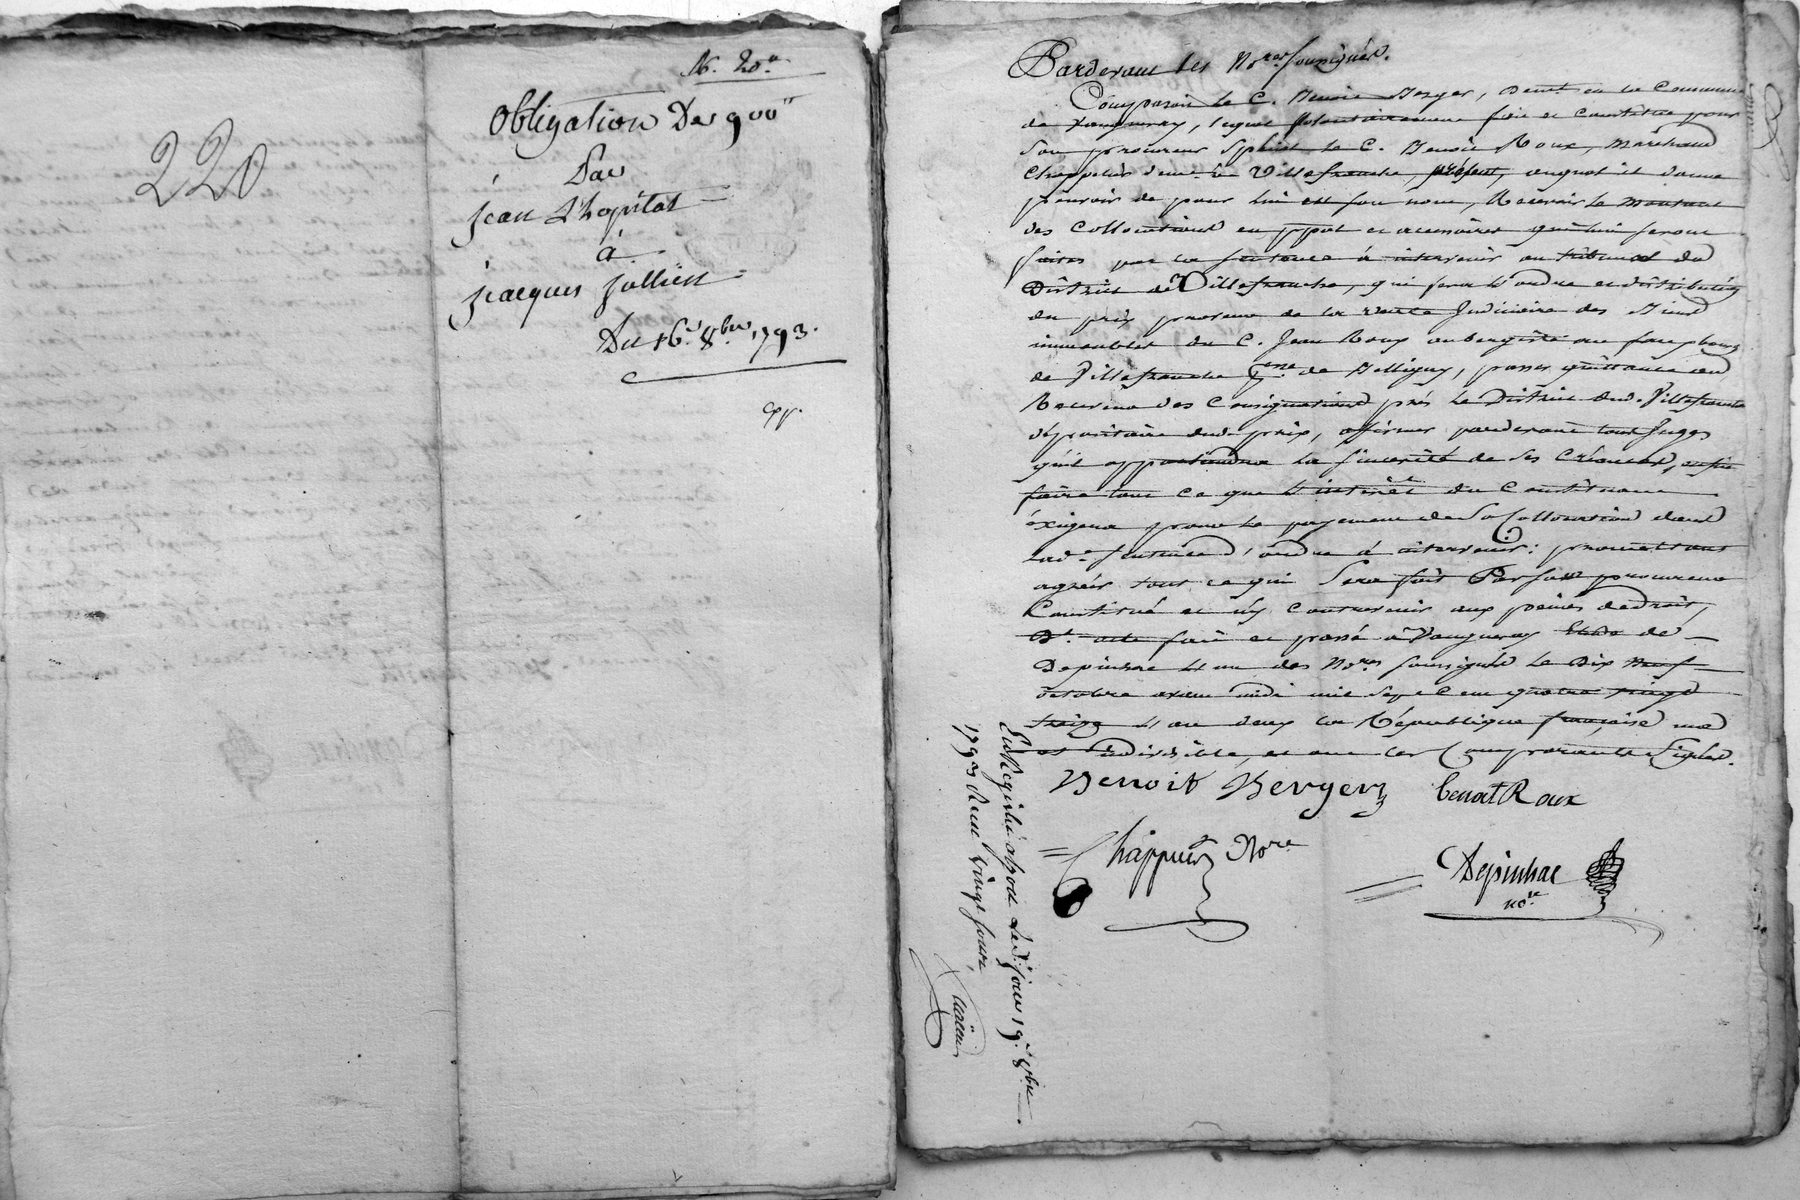 N. 20.e
220
Obligation De 900"
Par
jean L'hopital
à
jacques jullien
Du 16.e 8.bre 1793.
exp.
Pardevant les No.res soussignés.
Comparait le C. Benoit Berger, demt. en la Commune
de Vaugneray, lequel volontairement fait et constitue pour
son procureur spécial le C. Benoit Roux, Marchand
Chappelier demt. à Villefranche, présent, auquel il donne
pouvoir de pour lui et en son nom, Recevoir le montant
des Collocations en ppal et accessoires qui lui seront
faites par la sentence à intervenir au tribunal du
District de Villefranche, qui fera l'ordre et distribution
du prix provenu de la vente Judiciaire des Biens
immeubles du C. Jean Roux aubergiste au fauxbourg
de Villefranche de Belligny, passer quittance au
Receveur des Consignations près le District dud. Villefranche
dépositaire dud. prix, affirmer pardevant tous Juges
qu'il appartiendra la sincérité de ses Créances, enfin
faire tout ce que l'intérêt du Constituant
éxigera pour le payement de sa Collocation dans
lad.e sentence d'ordre à intervenir; promettant
agréer tout ce qui sera fait Par son procureur
Constitué et n'y contrevenir aux peines de droit,
Dt. acte fait et passé à Vaugneray Etude de
Depinhac l'un des No.res soussignés le Dix Neuf
octobre avant midi mil sept cent quatre vingt
treize l'an deux la République française une
et indivisible, et ont les Comparants Signé.
Benoit Berger benoit Roux
Chappuis No.re
Depinhac
no.re
Enregistré à led. jour 19.e 8bre
1793 Reçu vingt sous